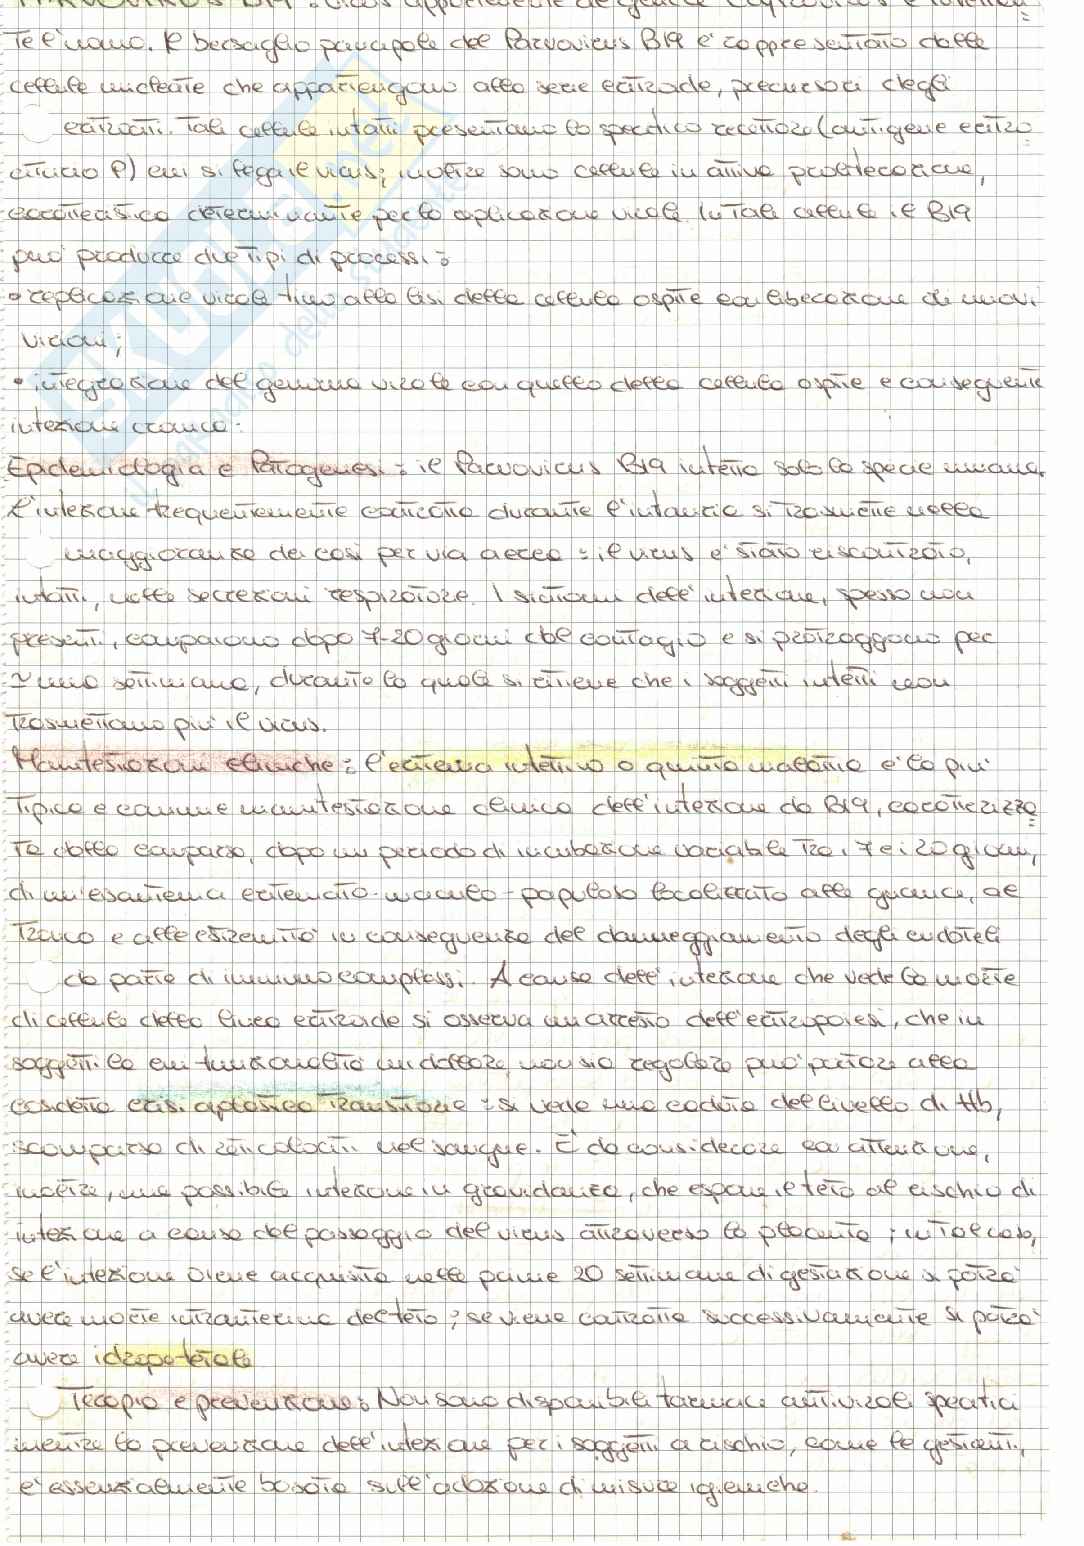 PARVOVIRUS B19: virus appartenente al genere
te l'uomo. Il bersaglio principale del Parvovirus B19 è rappresentato dalle
cellule nucleate che appartengono alla serie eritroide, precursori degli
eritrociti. Tali cellule infatti presentano lo specifico recettore (antigene eritro
citario P) cui si lega il virus; inoltre sono cellule in attiva proliferazione,
caratteristica determinante per la replicazione virale. In tali cellule il B19
può produrre due tipi di processi:
• replicazione virale fino alla lisi della cellula ospite con liberazione di nuovi
virioni;
• integrazione del genoma virale con quello della cellula ospite e conseguente
infezione cronica.
Epidemiologia e Patogenesi: il Parvovirus B19 infetta solo la specie umana.
L'infezione frequentemente contratta durante l'infanzia si trasmette nella
maggioranza dei casi per via aerea: il virus è stato riscontrato,
infatti, nelle secrezioni respiratorie. I sintomi dell'infezione, spesso non
presenti, compaiono dopo 7-20 giorni dal contagio e si protraggono per
≃ una settimana, durante la quale si ritiene che i soggetti infetti non
trasmettano più il virus.
Manifestazioni cliniche: l'eritema infettivo o quinta malattia è la più
tipica e comune manifestazione clinica dell'infezione da B19, caratterizza
ta dalla comparsa, dopo un periodo di incubazione variabile tra i 7 e i 20 giorni,
di un'esantema eritemato-maculo-papuloso localizzato alle guance, al
tronco e alle estremità in conseguenza del danneggiamento degli endoteli
da parte di immunocomplessi. A causa dell'infezione che vede la morte
di cellule della linea eritroide si osserva un arresto dell'eritropoiesi, che in
soggetti la cui funzionalità midollare non sia regolare può portare alla
cosidetta crisi aplastica transitoria: si vede una caduta del livello di Hb,
scomparsa di reticolociti nel sangue. È da considerare con attenzione,
inoltre, una possibile infezione in gravidanza, che espone il feto al rischio di
infezione a causa del passaggio del virus attraverso la placenta; in tal caso,
se l'infezione viene acquisita nelle prime 20 settimane di gestazione si potrà
avere morte intrauterina del feto; se viene contratta successivamente si potrà
avere idrope fetale
Terapia e prevenzione: Non sono disponibili farmaci antivirali specifici
mentre la prevenzione dell'infezione per i soggetti a rischio, come le gestanti,
è essenzialmente basata sull'adozione di misure igieniche.